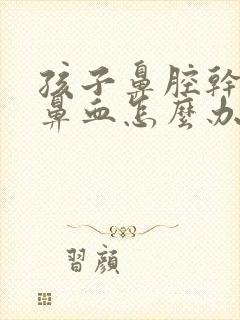 孩子鼻腔幹
鼻血怎麼办
習顔